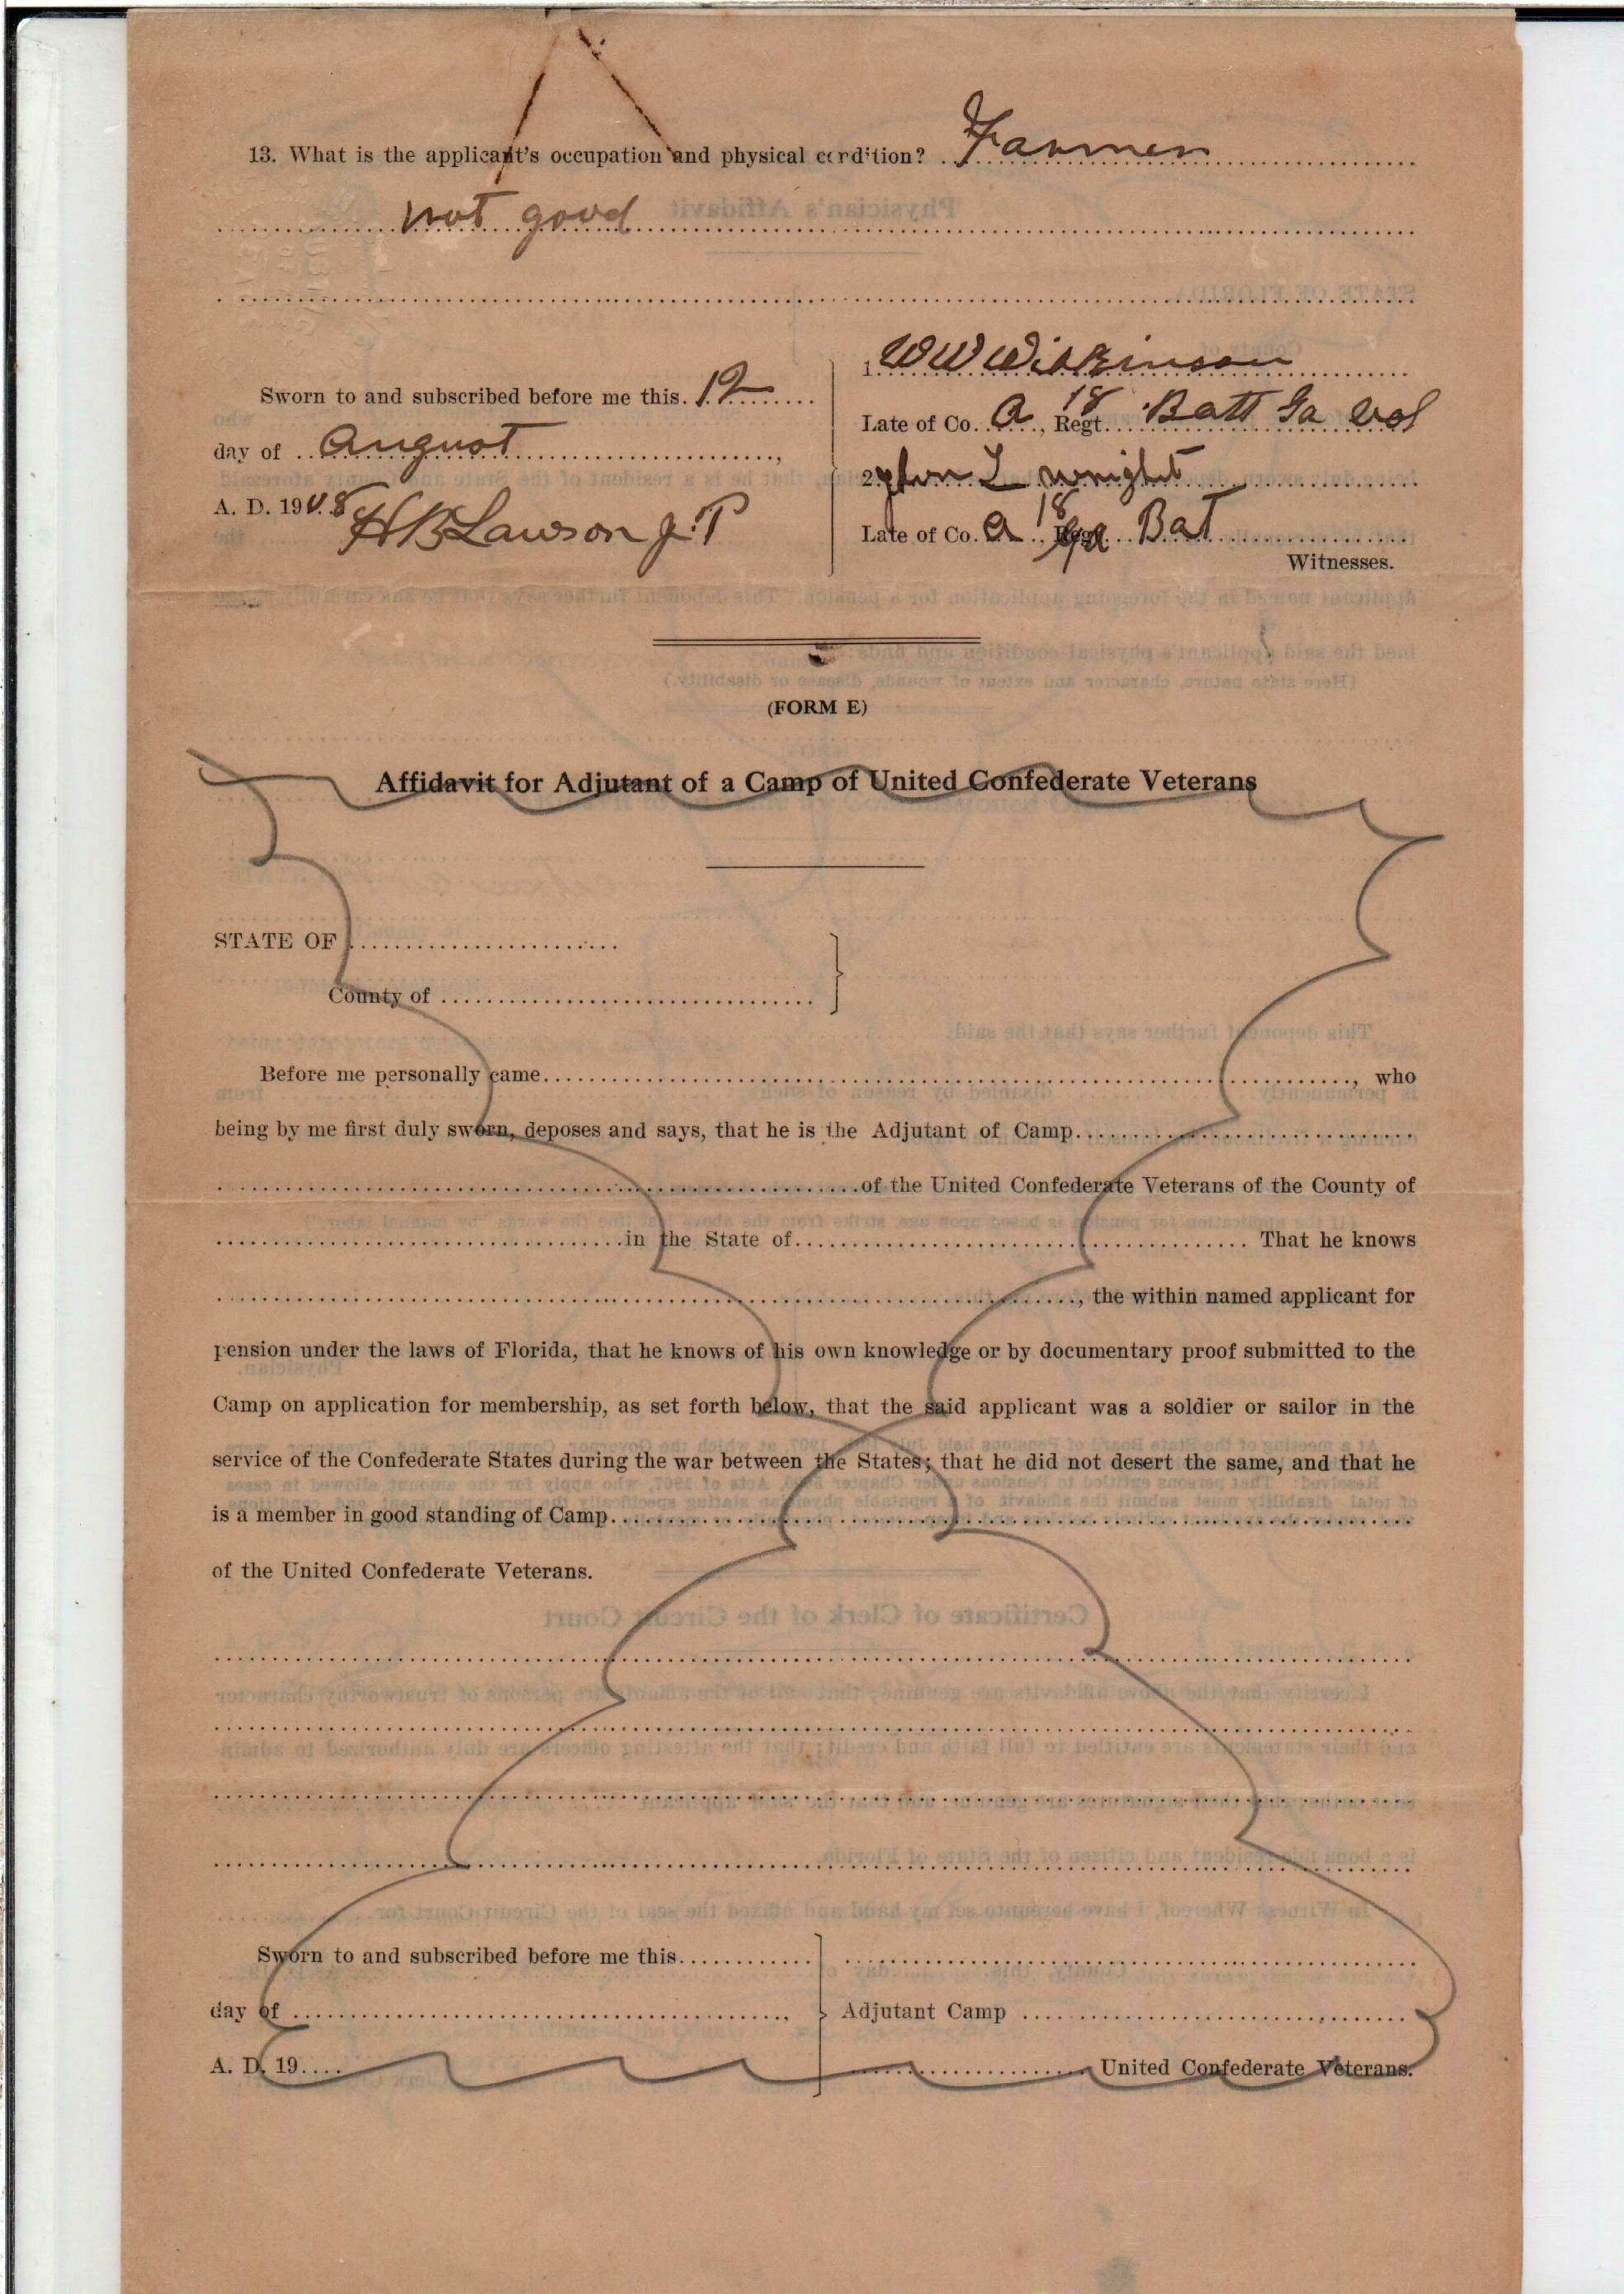 13. What is the applicant's occupation and physical condition? Farmer
not good
Sworn to and subscribed before me this. 12
day of August,
A. D. 1908 H B Lawson J. P
1. W W Wilkinson
Late of Co. A, Regt. 18 Batt Ga Vol
2. L Wright
Late of Co. A 18 Ga Bat
Witnesses.
(FORM E)
Affidavit for Adjutant of a Camp of United Confederate Veterans
STATE OF
County of
Before me personally came, who
being by me first duly sworn, deposes and says, that he is the Adjutant of Camp
of the United Confederate Veterans of the County of
in the State of That he knows
, the within named applicant for
pension under the laws of Florida, that he knows of his own knowledge or by documentary proof submitted to the
Camp on application for membership, as set forth below, that the said applicant was a soldier or sailor in the
service of the Confederate States during the war between the States; that he did not desert the same, and that he
is a member in good standing of Camp
of the United Confederate Veterans.
Sworn to and subscribed before me this
day of,
A. D. 19
Adjutant Camp
United Confederate Veterans.